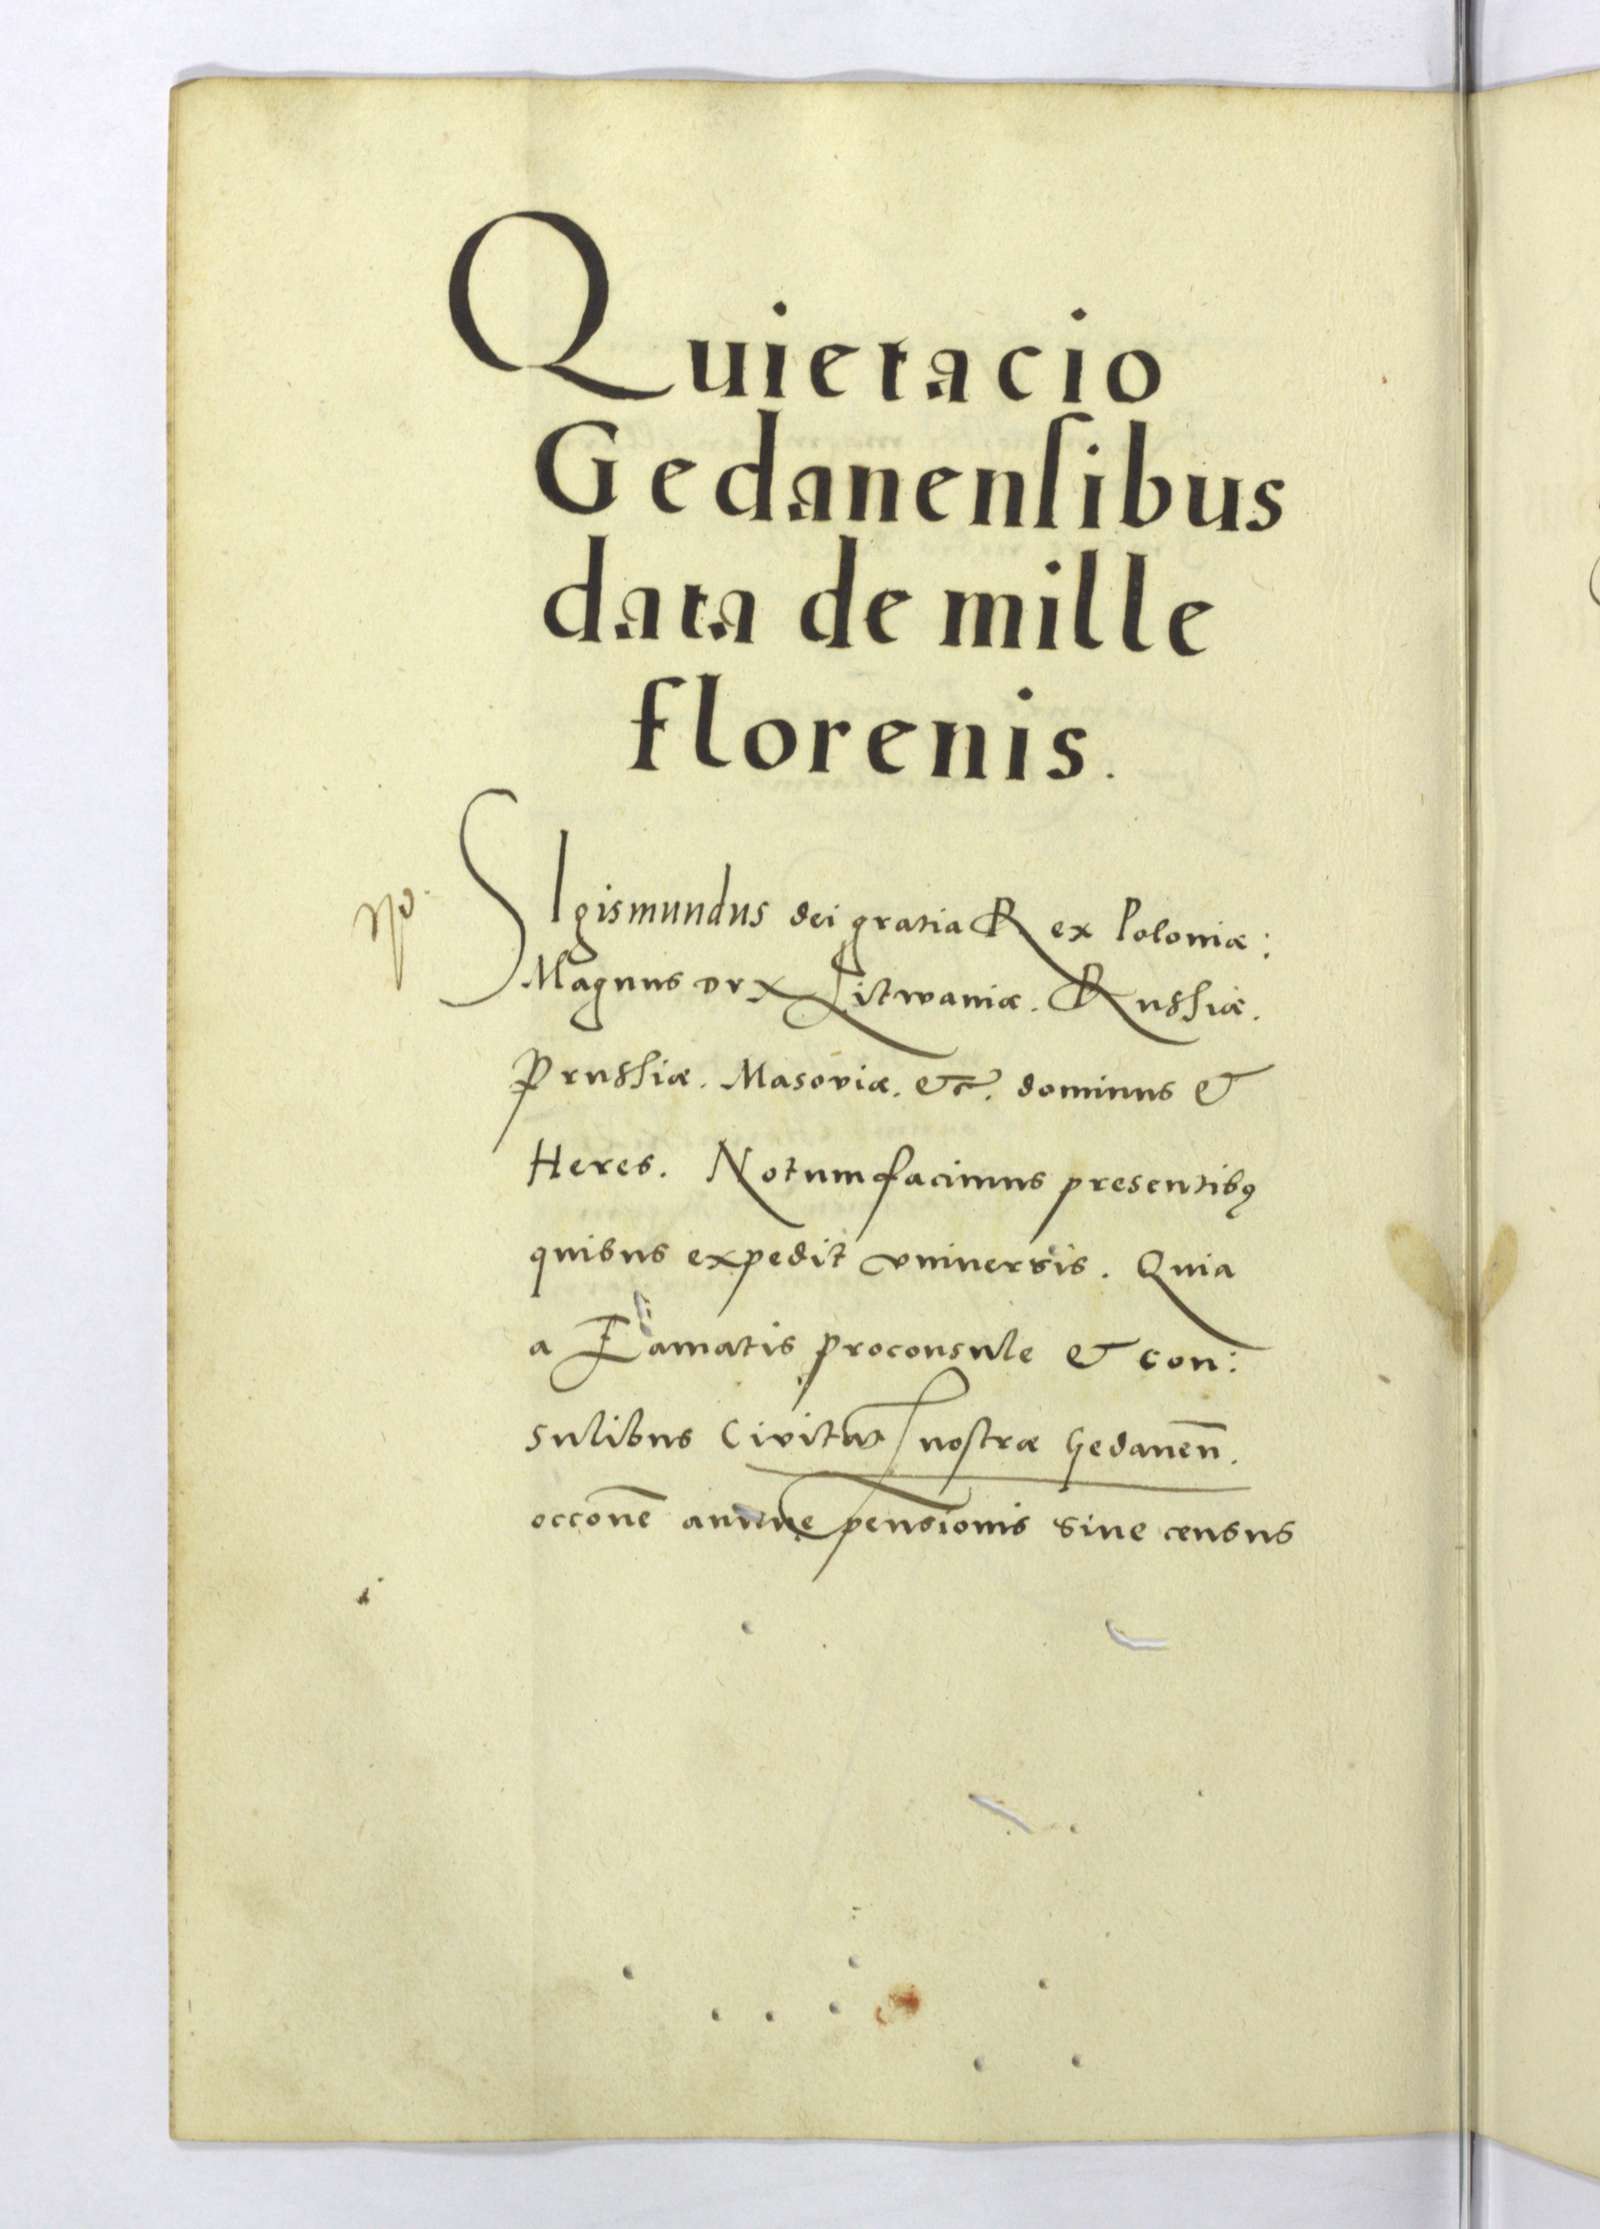 Quietacio
Gedanenſibus
data de mille
florenis.
SIgismundus dei gratia Rex Poloniæ:
Magnus dux Litwaniæ. Rusſiæ.
Prusſiæ. Masoviæ. &c. dominus &
Heres. Notum facimus presentibꝯ
quibus expedit vniversis. Quia
a Famatis proconsule & con:
sulibus Civitat noſtræ Gedaneñ.
annue pensionis sive census